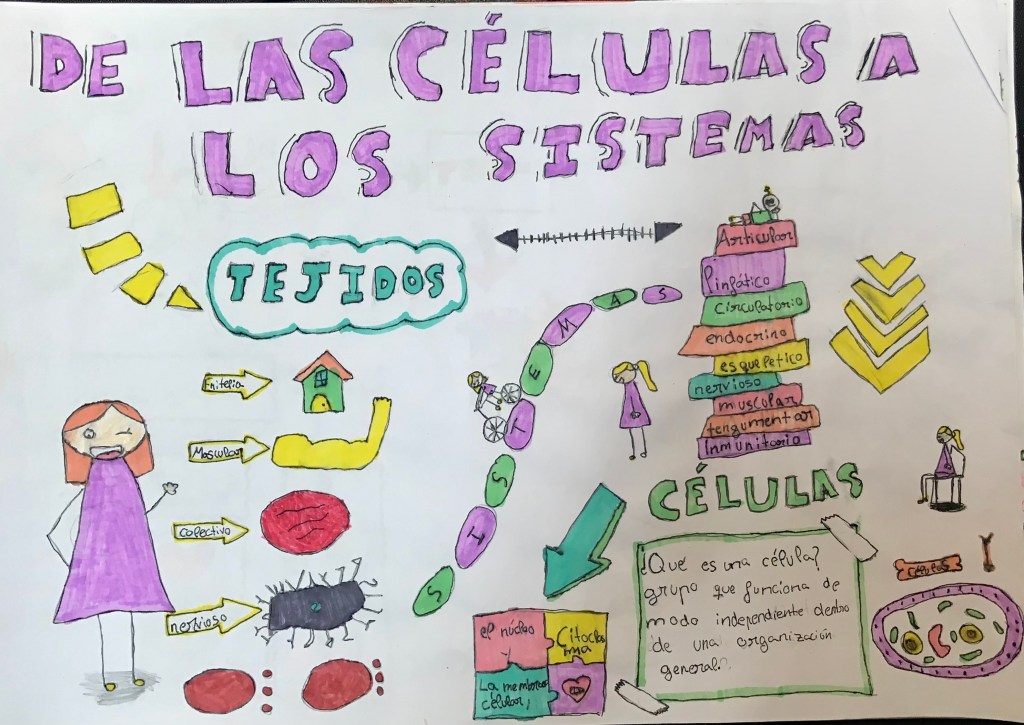 DE LAS CÉLULAS A
LOS SISTEMAS
TEJIDOS
Enitelia
Mosculor
colectivo
nervioso
SISTEMAS
Articular
linfático
circulatorio
endocrino
esqueletico
nervioso
muscular
tengumentar
Inmunitario
CÉLULAS
¿Qué es una célula?
grupo que funciona de
modo independiente dentro
de una organización
general.
el núcleo
Citoclas
ma
La membrana
célular,
Células